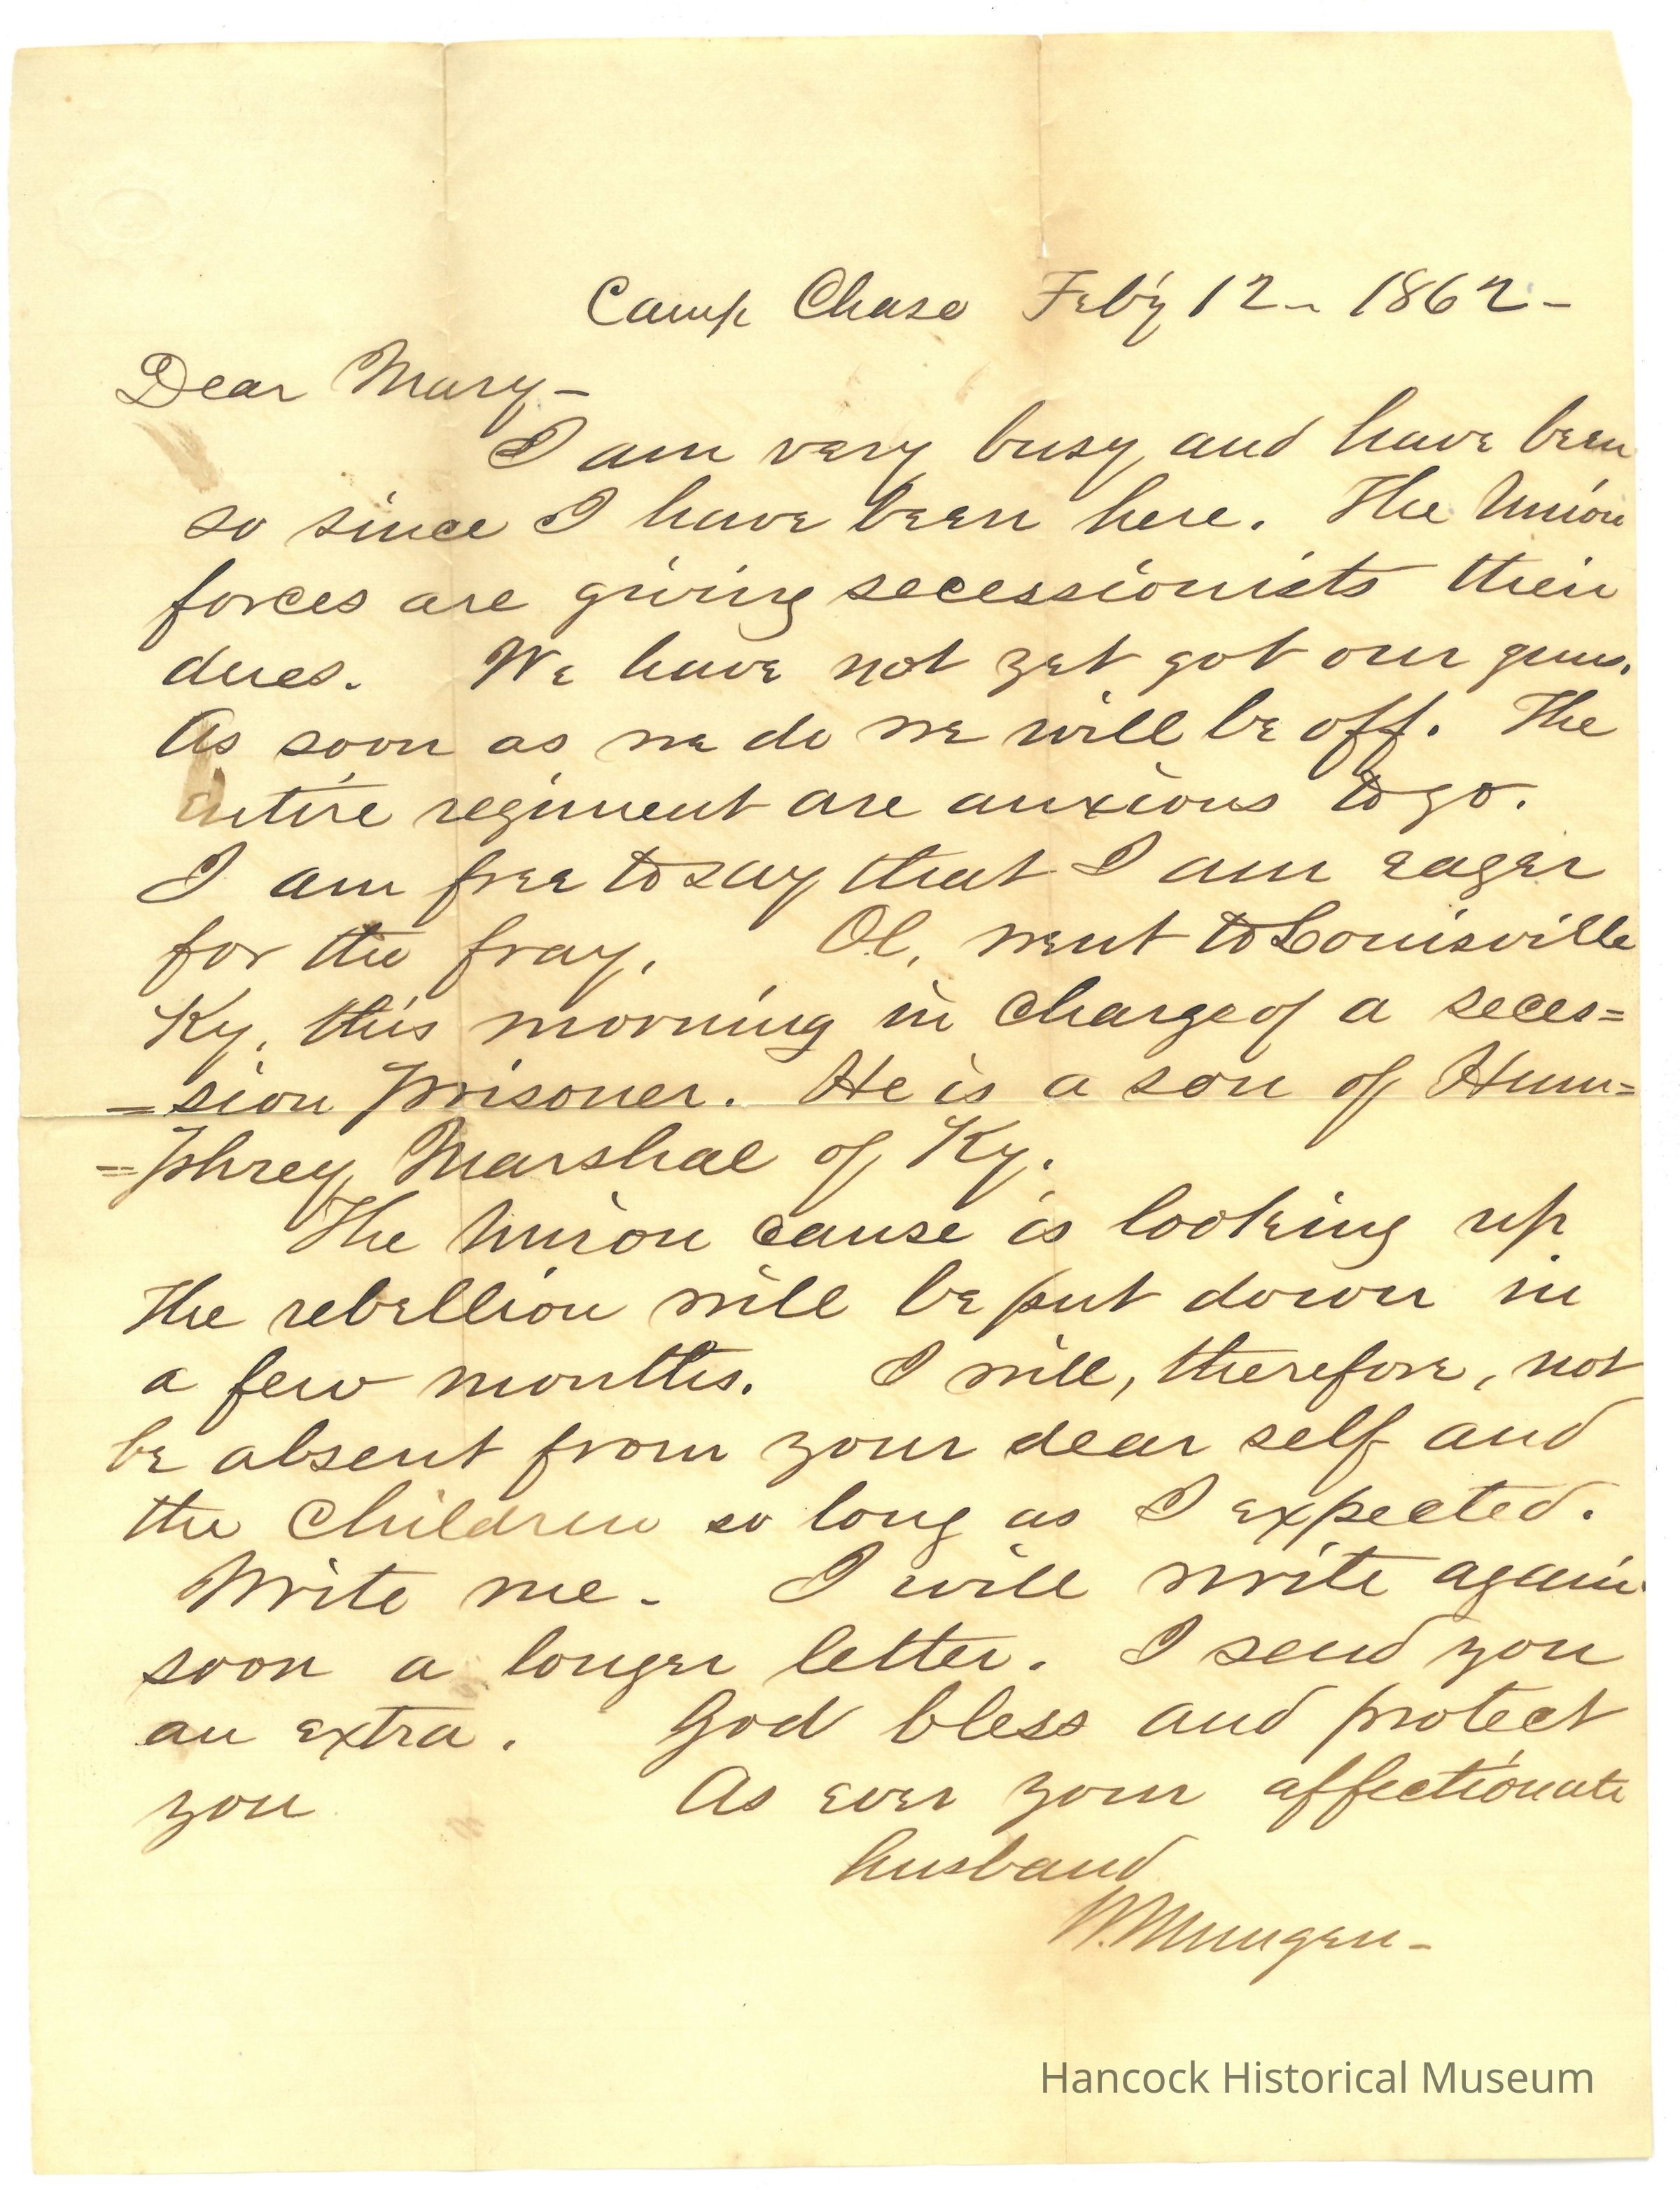 Camp Chase Feb'y 12 - 1862 -
Dear Mary -
I am very busy and have been
so since I have been here. The Union
forces are giving secessionists their
dues. We have not yet got our guns.
As soon as we do we will be off. The
entire regiment are anxious to go.
I am free to say that I am eager
for the fray. Ol. went to Louisville
Ky. this morning in charge of a seces=
=sion prisoner. He is a son of Hum=
=phrey Marshal of Ky.
The Union cause is looking up
The rebellion will be put down in
a few months. I will, therefore, not
be absent from your dear self and
the children so long as I expected.
Write me - I will write again
soon a longer letter. I send you
an extra. God bless and protect
you As ever your affectionate
husband
W. Mungen -
Hancock Historical Museum